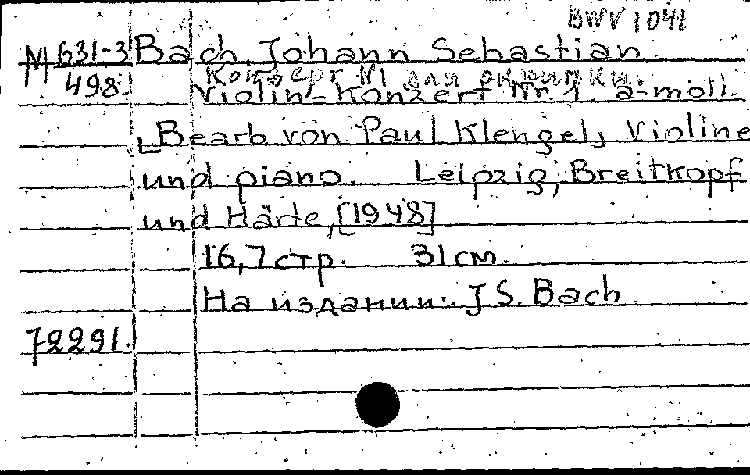 BWV 1041
M 631-3 Bach, Johann Sebastian
498. Концерт N1 для скрипки.
Violin-Konzert Nr 1. a-moll.
Bearb von Paul Klengel, Violine
und piano. Leipzig, Breitkopf
und Härte, [1948]
16, 7 стр. 31 см.
На издании: J S. Bach
72291.